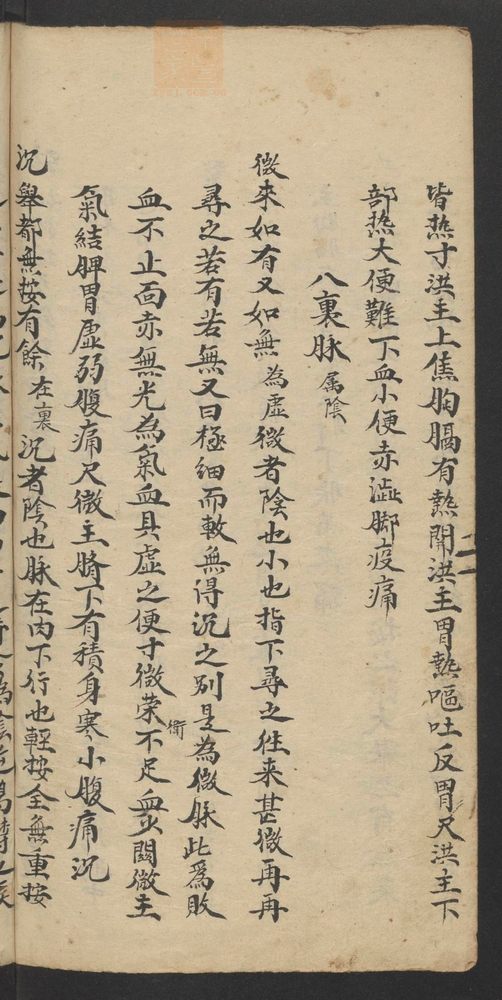 皆熱寸洪主上焦胸膈有熱関洪主胃熱嘔吐反胃尺洪主下
部热大便難下血小便赤澁脚疫痛
八裏脉 属陰
微来如有又如無 為虛微者陰也小也指下尋之往来甚微再再
尋之若有若無又曰極细而軟無得沉之别是為微脉此為敗
血不止面赤無光為氣血具虛之便寸微荣衛不足血少関微主
氣结脾胃虛弱腹痛尺微主臍下有積身寒小腹痛沉
沉舉都無按有餘 在裏 沉者陰也脉在肉下行也輕按全無重按